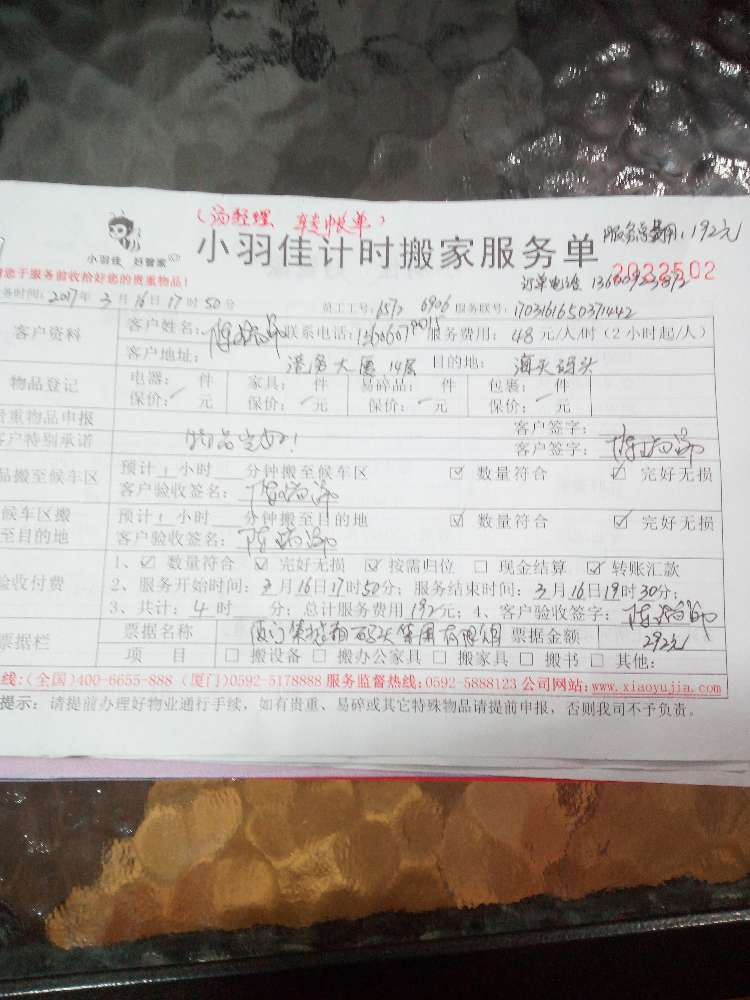 转账单
小羽佳 好管家
小羽佳计时搬家服务单
服务总费用:192元
您于服务前收拾好您的贵重物品!
2022502
务时间:2017年3月16日17时50分 员工工号:6572 6906 服务联号:1703161650371442
客户资料 客户姓名: 联系电话: 服务费用:48元/人/时(2小时起/人)
客户地址:港务大厦14层 目的地:海天码头
物品登记 电器: 件 家具: 件 易碎品: 件 包裹: 件
保价: 元 保价: 元 保价: 元 保价: 元
贵重物品申报 客户签字:
客户特别承诺 物品完好! 客户签字:
品搬至候车区 预计1小时 分钟搬至候车区 ☑ 数量符合 ☑ 完好无损
客户验收签名:
候车区搬至目的地 预计1小时 分钟搬至目的地 ☑ 数量符合 ☑ 完好无损
客户验收签名:
验收付费 1、☑ 数量符合 ☑ 完好无损 ☑ 按需归位 □ 现金结算 ☑ 转账汇款
2、服务开始时间:3月16日17时50分;服务结束时间:3月16日19时30分;
3、共计:4时 分;总计服务费用192元;4、客户验收签字:
票据栏 票据名称 票据金额 292元
项 目 □ 搬设备 □ 搬办公家具 □ 搬家具 □ 搬书 □ 其他:
线:(全国)400-6655-888 (厦门)0592-5178888 服务监督热线:0592-5888123 公司网站:www.xiaoyujia.com
提示:请提前办理好物业通行手续,如有贵重、易碎或其它特殊物品请提前申报,否则我司不予负责。